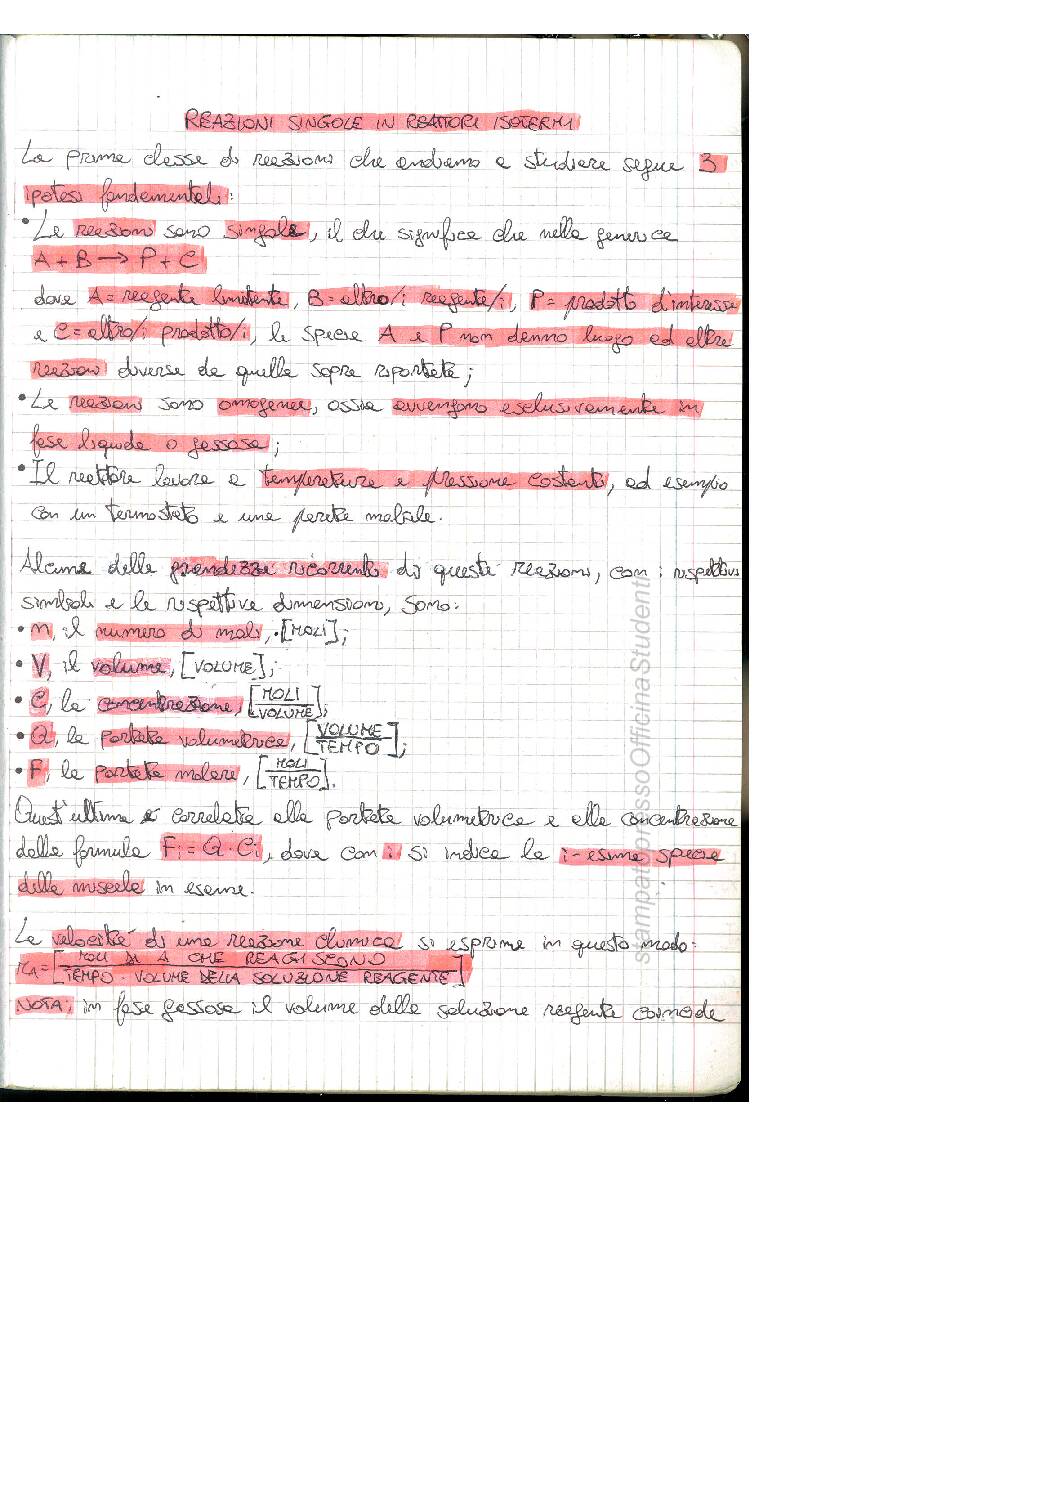 REAZIONI SINGOLE IN REATTORI ISOTERMI
La prima classe di reazioni che andiamo a studiare segue 3
ipotesi fondamentali:
• Le reazioni sono singole, il che significa che nella generica
A + B → P + C
dove A = reagente limitante, B = altro/i reagente/i, P = prodotto d'interesse
e C = altro/i prodotto/i, le specie A e P non danno luogo ad altre
reazioni diverse da quella sopra riportata;
• Le reazioni sono omogenee, ossia avvengono esclusivamente in
fase liquida o gassosa;
• Il reattore lavora a temperatura e pressione costanti, ad esempio
con un termostato e una parete mobile.
Alcune delle grandezze ricorrenti di queste reazioni, con i rispettivi
simboli e le rispettive dimensioni, sono:
• n, il numero di moli, [MOLI];
• V, il volume, [VOLUME];
• C, la concentrazione, [MOLI/VOLUME];
• Q, la portata volumetrica, [VOLUME/TEMPO];
• F, la portata molare, [MOLI/TEMPO].
Quest'ultima è correlata alla portata volumetrica e alla concentrazione
dalla formula Fi = Q · Ci, dove con i si indica la i-esima specie
della miscela in esame.
La velocità di una reazione chimica si esprime in questo modo:
rA = [MOLI DI A CHE REAGISCONO / TEMPO · VOLUME DELLA SOLUZIONE REAGENTE]
NOTA: in fase gassosa il volume della soluzione reagente coincide
sampatopressoOfficinaStudenti